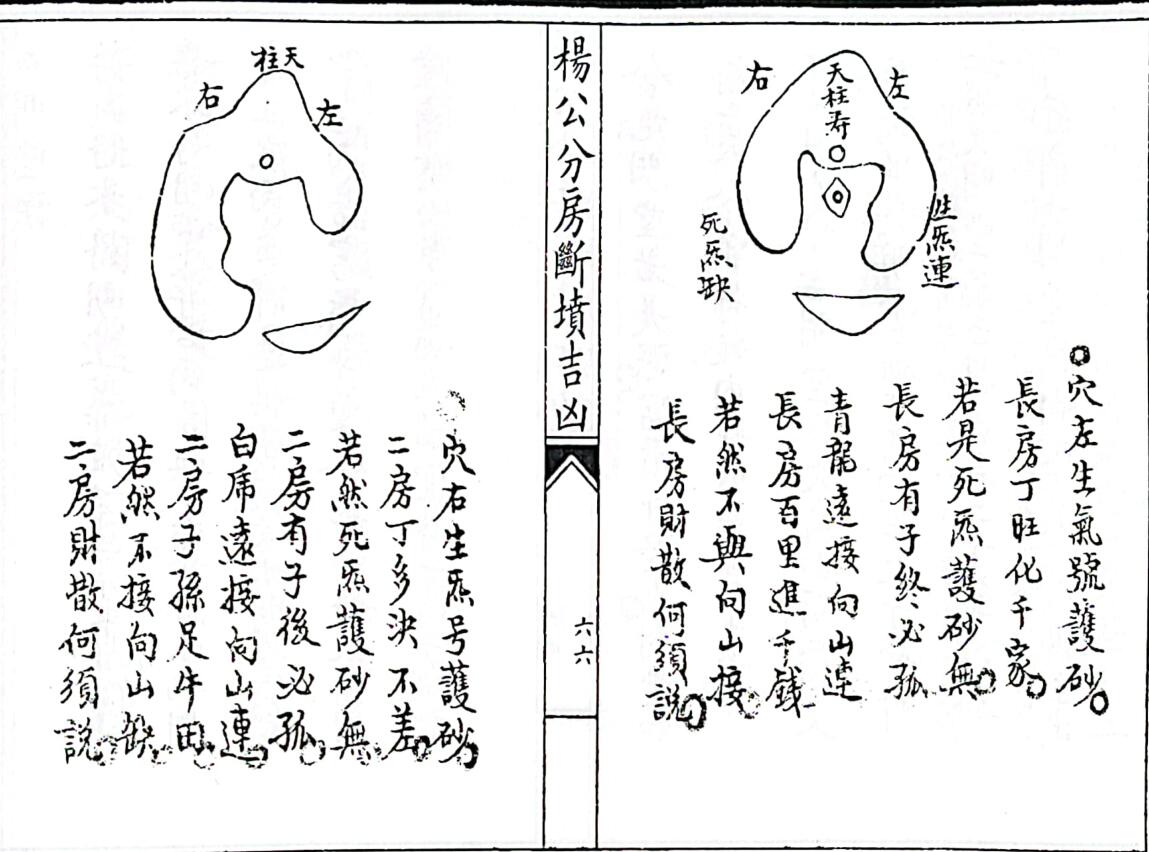 右
天柱寿
左
生炁連
死炁缺
穴左生氣號護砂
長房丁旺化千家
若是死炁護砂無
長房有子終必孤
青龍遠接向山連
長房百里進千錢
若然不與向山接
長房財散何須説
楊公分房斷墳吉凶
六六
天柱
右
左
穴右生炁号護砂
二房丁多決不差
若然死炁護砂無
二房有子後必孤
白虎遠接向山連
二房子孫足牛田
若然不接向山缺
二房財散何須説